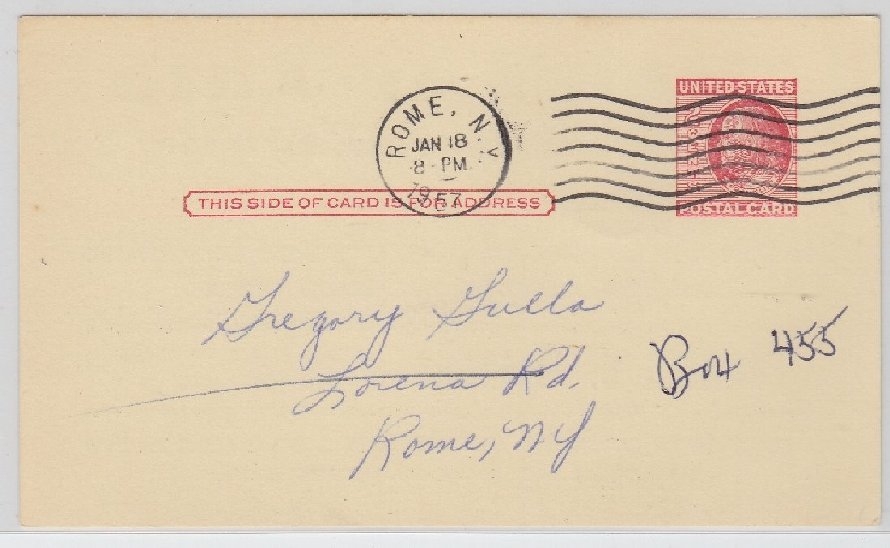 UNITED STATES
POSTAL CARD
ROME, N.Y.
JAN 18
8 - PM
1957
THIS SIDE OF CARD IS FOR ADDRESS
Gregory Guella
Lorena Rd.
Rome, NY
Box 455